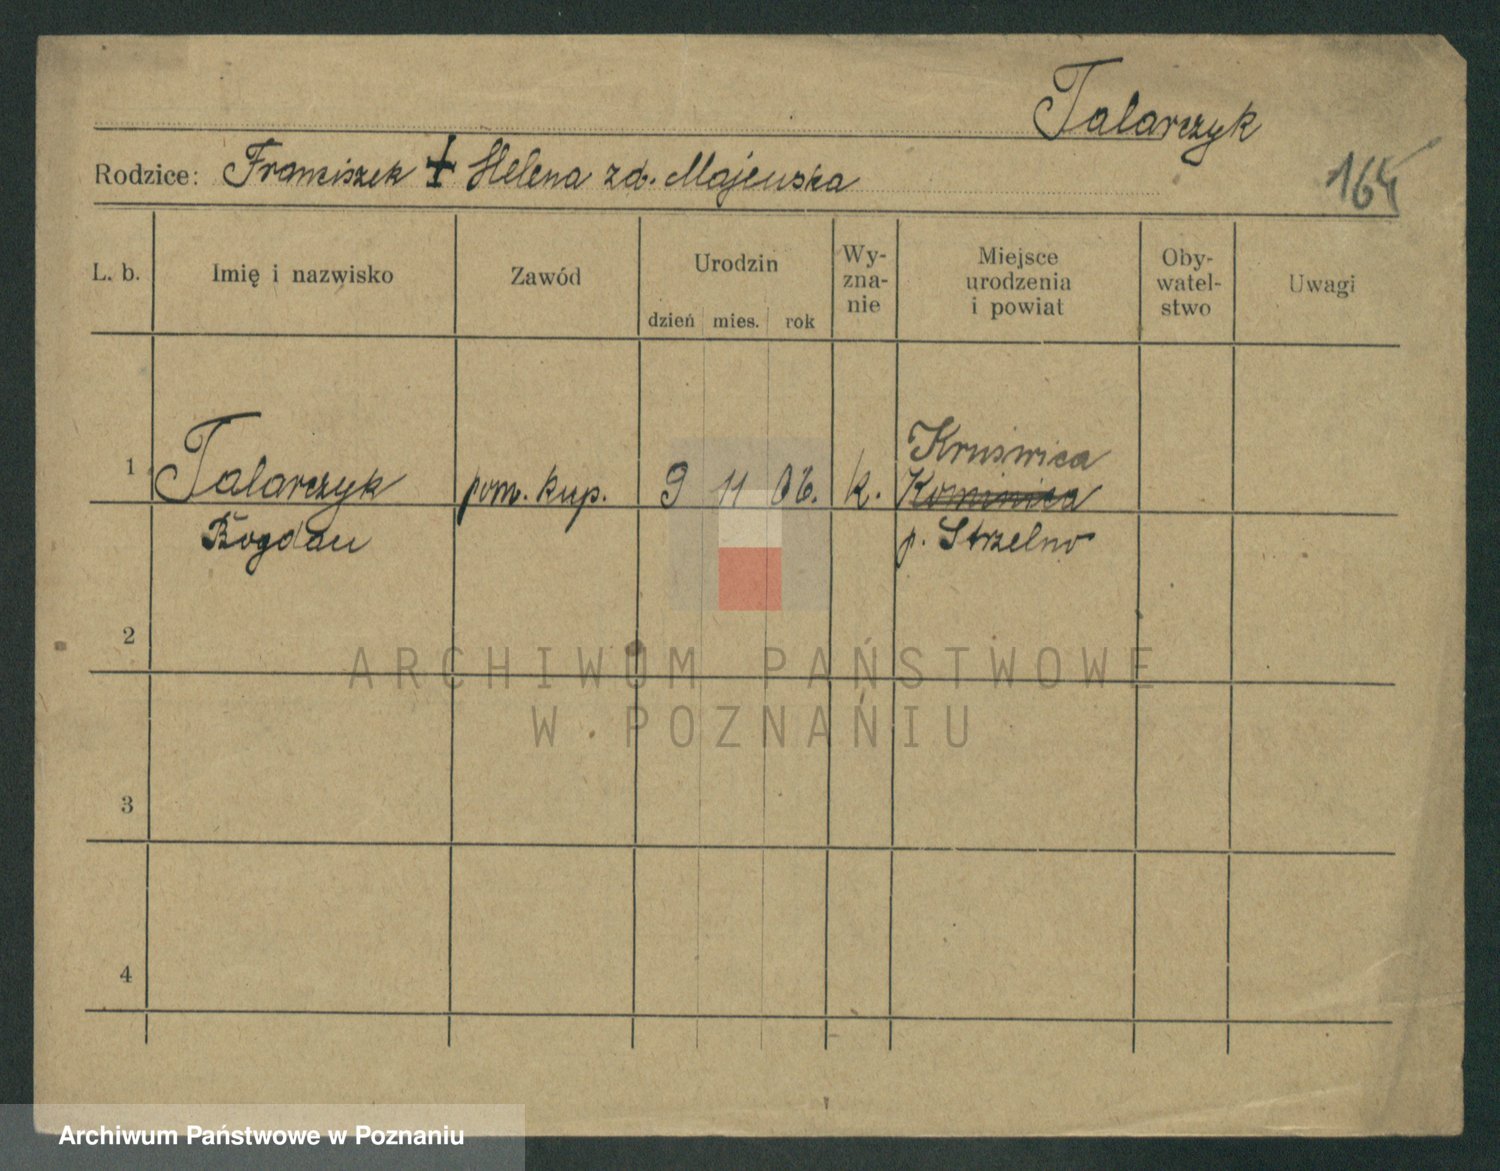 Talarczyk
Rodzice: Franciszek + Helena zd. Majewska
164
L. b.
Imię i nazwisko
Zawód
Urodzin
dzień mies. rok
Wy-
zna-
nie
Miejsce
urodzenia
i powiat
Oby-
watel-
stwo
Uwagi
1 Talarczyk pom. kup. 9 11 06. k. Kruświca
Bogdan p. Strzelno
2
3
4
ARCHIWUM PAŃSTWOWE
W POZNANIU
Archiwum Państwowe w Poznaniu